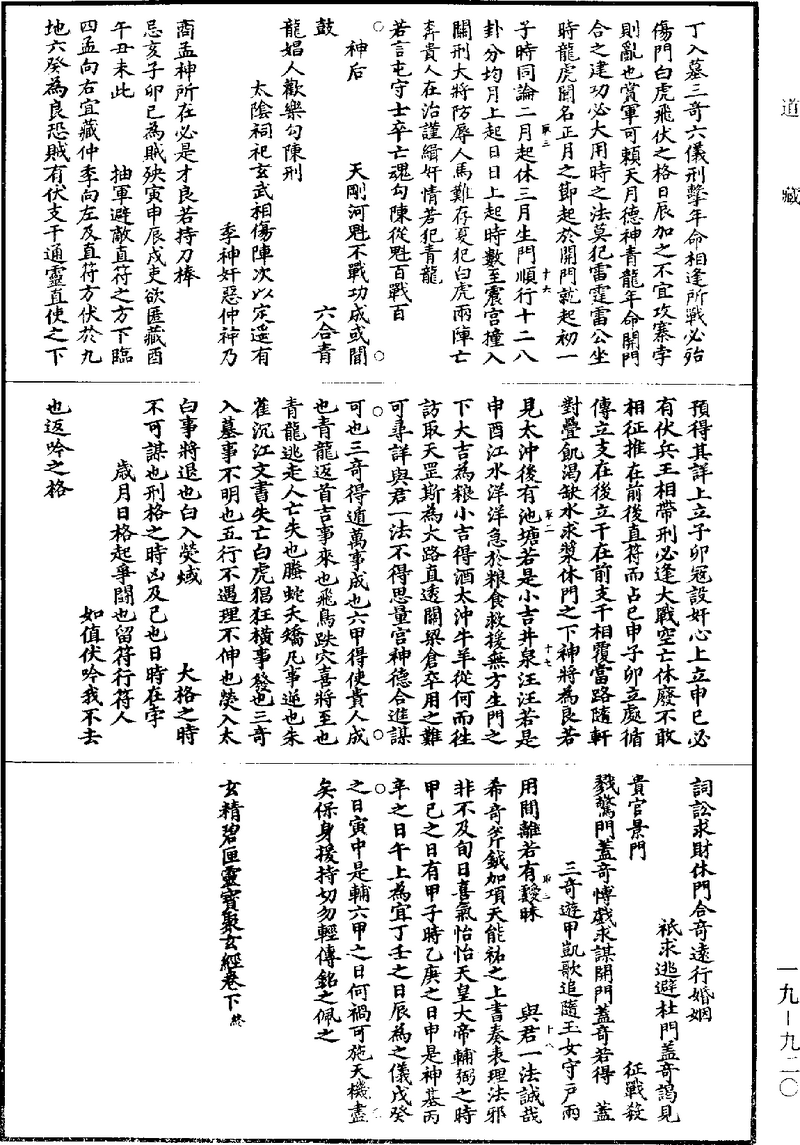 道藏
丁入墓三奇六儀刑擊年命相逢所戰必殆
傷門白虎飛伏之格日辰加之不宜攻寨孛
則亂也賞軍可頼天月德神青龍年命開門
合之建功必大用時之法莫犯雷霆雷公坐
時龍虎鬪名正月之節起於開門就起初一
子時同論二月起休三月生門順行十二八
卦分均月上起日日上起時數至震宮撞入
關刑大將防辱人馬難存夏犯白虎兩陣亡
奔貴人在治謹緝奸情若犯青龍
若言屯守士卒亡魂勾陳從魁百戰百
神后 天剛河魁不戰功成或聞
鼓 六合青
龍娼人歡樂勾陳刑
太陰祠祀玄武相傷陣次以定遥有
季神奸惡仲神乃
商孟神所在必是才良若持刀棒
忌亥子卯巳為賊殃寅申辰戌吏欲匿藏酉
午丑未此 抽軍避敵直符之方下臨
四孟向右宜藏仲季向左及直符方伏於九
地六癸為良恐賊有伏支干通靈直使之下
預得其詳上立子卯冦設奸心上立申巳必
有伏兵王相帶刑必逢大戰空亡休廢不敢
相征推在前後直符而占巳申子卯立處循
傳立支在後立干在前支干相覆當路隨軒
對疊飢渴缺水求漿休門之下神將為良若
見太沖後有池塘若是小吉井泉汪汪若是
申酉江水洋洋急於粮食救援無方生門之
下大吉為粮小吉得酒太沖牛羊從何而徃
訪取天罡斯為大路直透關界倉卒用之難
可尋詳與君一法不得思量宫神德合進謀
可也三奇得遁萬事成也六甲得使貴人成
也青龍返首吉事來也飛鳥跌穴喜將至也
青龍逃走人亡失也螣蛇夭矯凡事逆也朱
雀沉江文書失亡白虎猖狂橫事發也三奇
入墓事不明也五行不遇理不伸也熒入太
白事將退也白入熒惑 大格之時
不可謀也刑格之時凶及己也日時在孛
歲月日格起爭鬪也留符行符人
如值伏吟我不去
也返吟之格
詞訟求財休門合奇遠行婚姻
祇求逃避杜門蓋奇謁見
貴官景門 征戰殺
戮驚門蓋奇愽戲求謀開門蓋奇若得 蓋
三奇遊甲凱歌追隨玉女守戸兩
用間離若有靉昧 與君一法誠哉
希奇斧鉞加項天能祐之上書奏表理法邪
非不及旬日喜氣怡怡天皇大帝輔弼之時
甲己之日有甲子時乙庚之日申是神基丙
辛之日午上為宜丁壬之日辰為之儀戊癸
之日寅中是輔六甲之日何禍可施天機盡
矣保身援持切勿輕傳銘之佩之
玄精碧匣靈寶聚玄經卷下 終
一九－九二〇